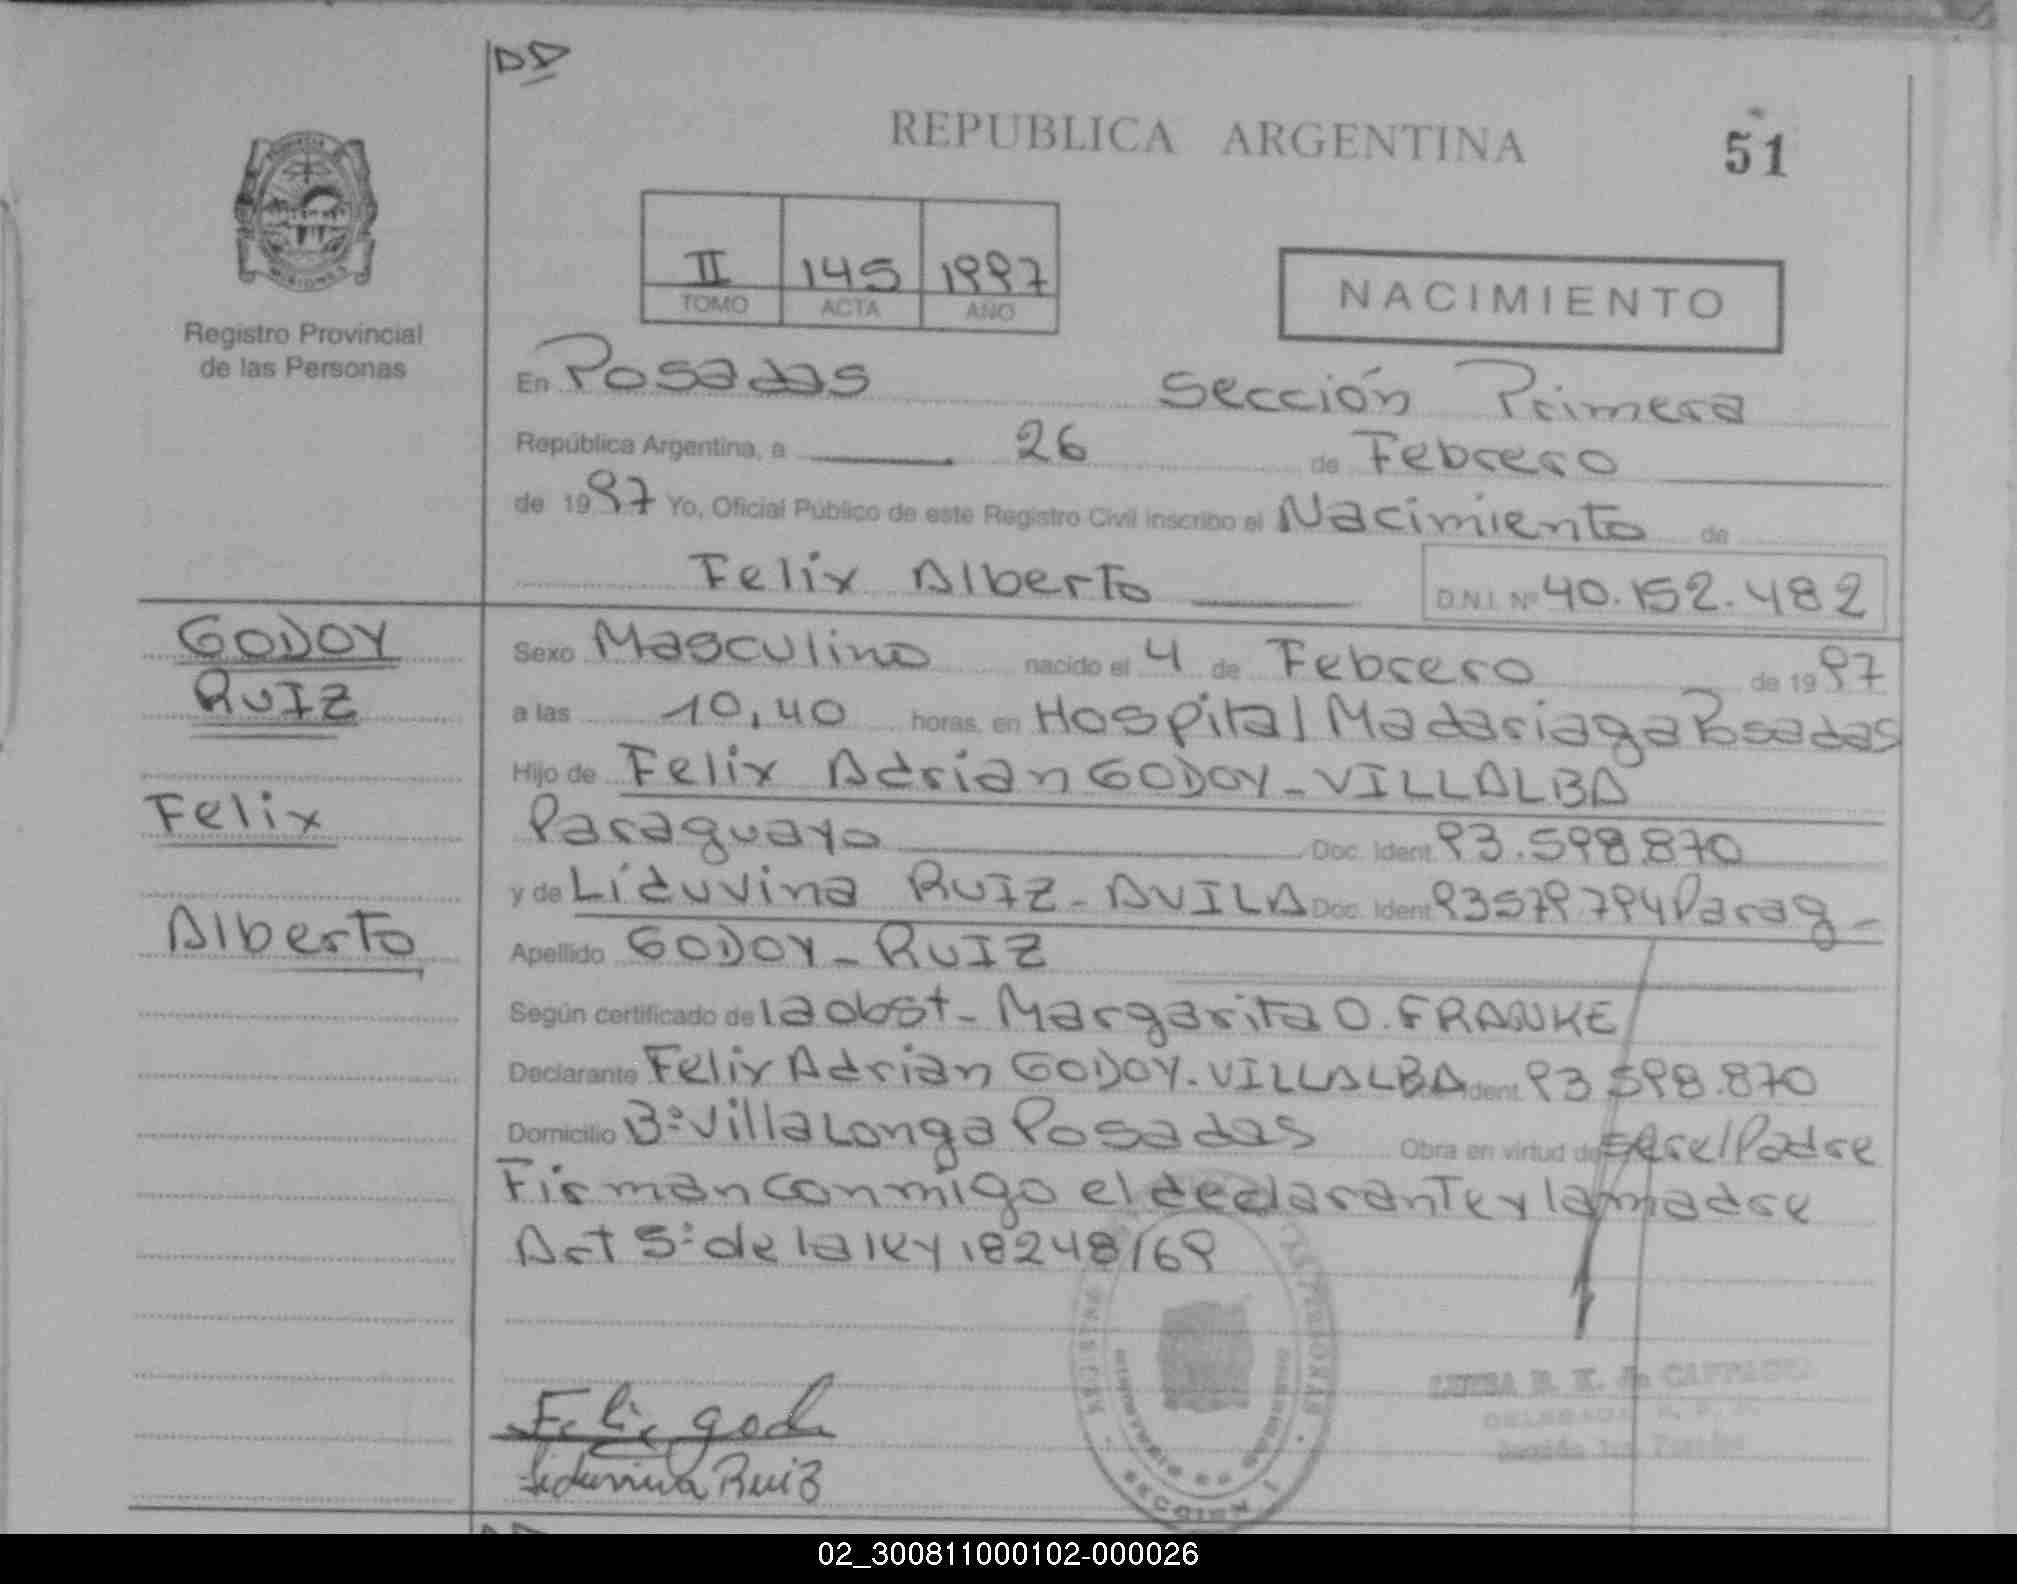 DD
REPUBLICA ARGENTINA
51
II 145 1997
TOMO ACTA AÑO
NACIMIENTO
Registro Provincial
de las Personas
En Posadas Sección Primera
República Argentina, a 26 de Febrero
de 1997 Yo, Oficial Público de este Registro Civil inscribo el Nacimiento de
Felix Alberto D.N.I. Nº 40.152.482
GODOY
RUIZ
Felix
Alberto
Sexo Masculino nacido el 4 de Febrero de 1997
a las 10,40 horas, en Hospital Madariaga Posadas
Hijo de Felix Adrian GODOY - VILLALBA
Paraguayo Doc. Ident. 93.598.870
y de Liduvina RUIZ - AVILA Doc. Ident. 93579.794 Parag -
Apellido GODOY - RUIZ
Según certificado de la obst - Margarita O. FRANKE
Declarante Felix Adrian GODOY - VILLALBA Ident. 93 598.870
Domicilio Bº Villa Longa Posadas Obra en virtud de ser el Padre
Firman conmigo el declarante y la madre
Art 5º de la ley 18248/69
Felix god
Liduvina Ruiz
SECCION 1
02_300811000102-000026